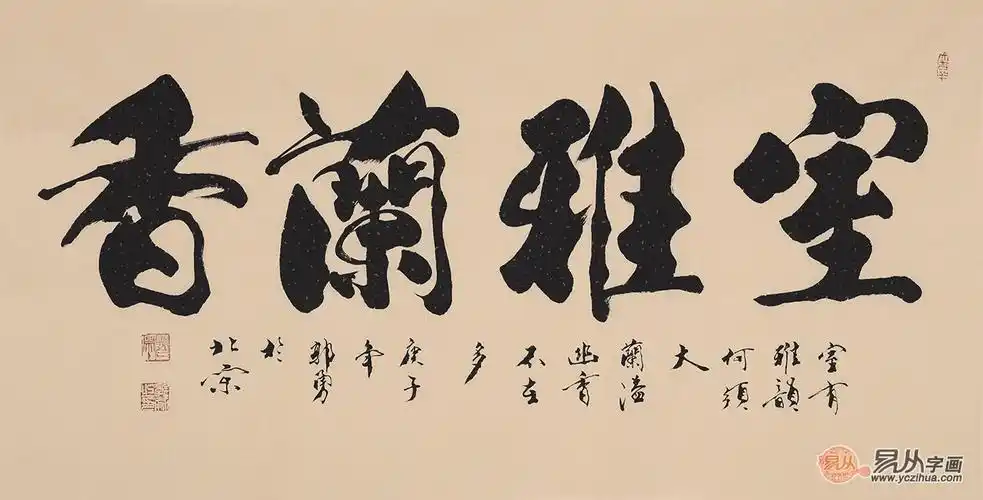 室雅蘭香
室有
雅韻
何須
大
蘭溢
幽香
不在
多
庚子
年
郭勇
於
北京
易从
易从字画
www.yczihua.com